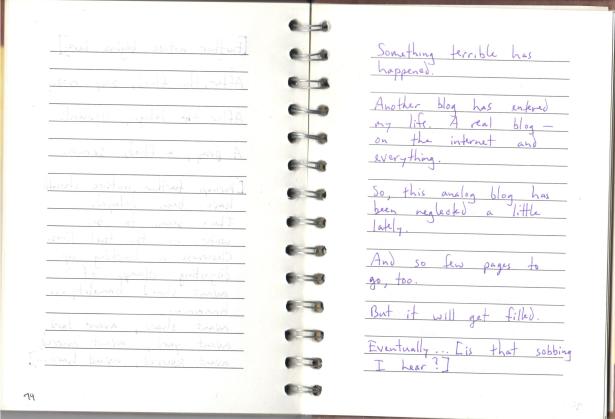 Something terrible has
happened.
Another blog has entered
my life. A real blog —
on the internet and
everything.
So, this analog blog has
been neglected a little
lately.
And so few pages to
go, too.
But it will get filled.
Eventually... [is that sobbing
I hear?]